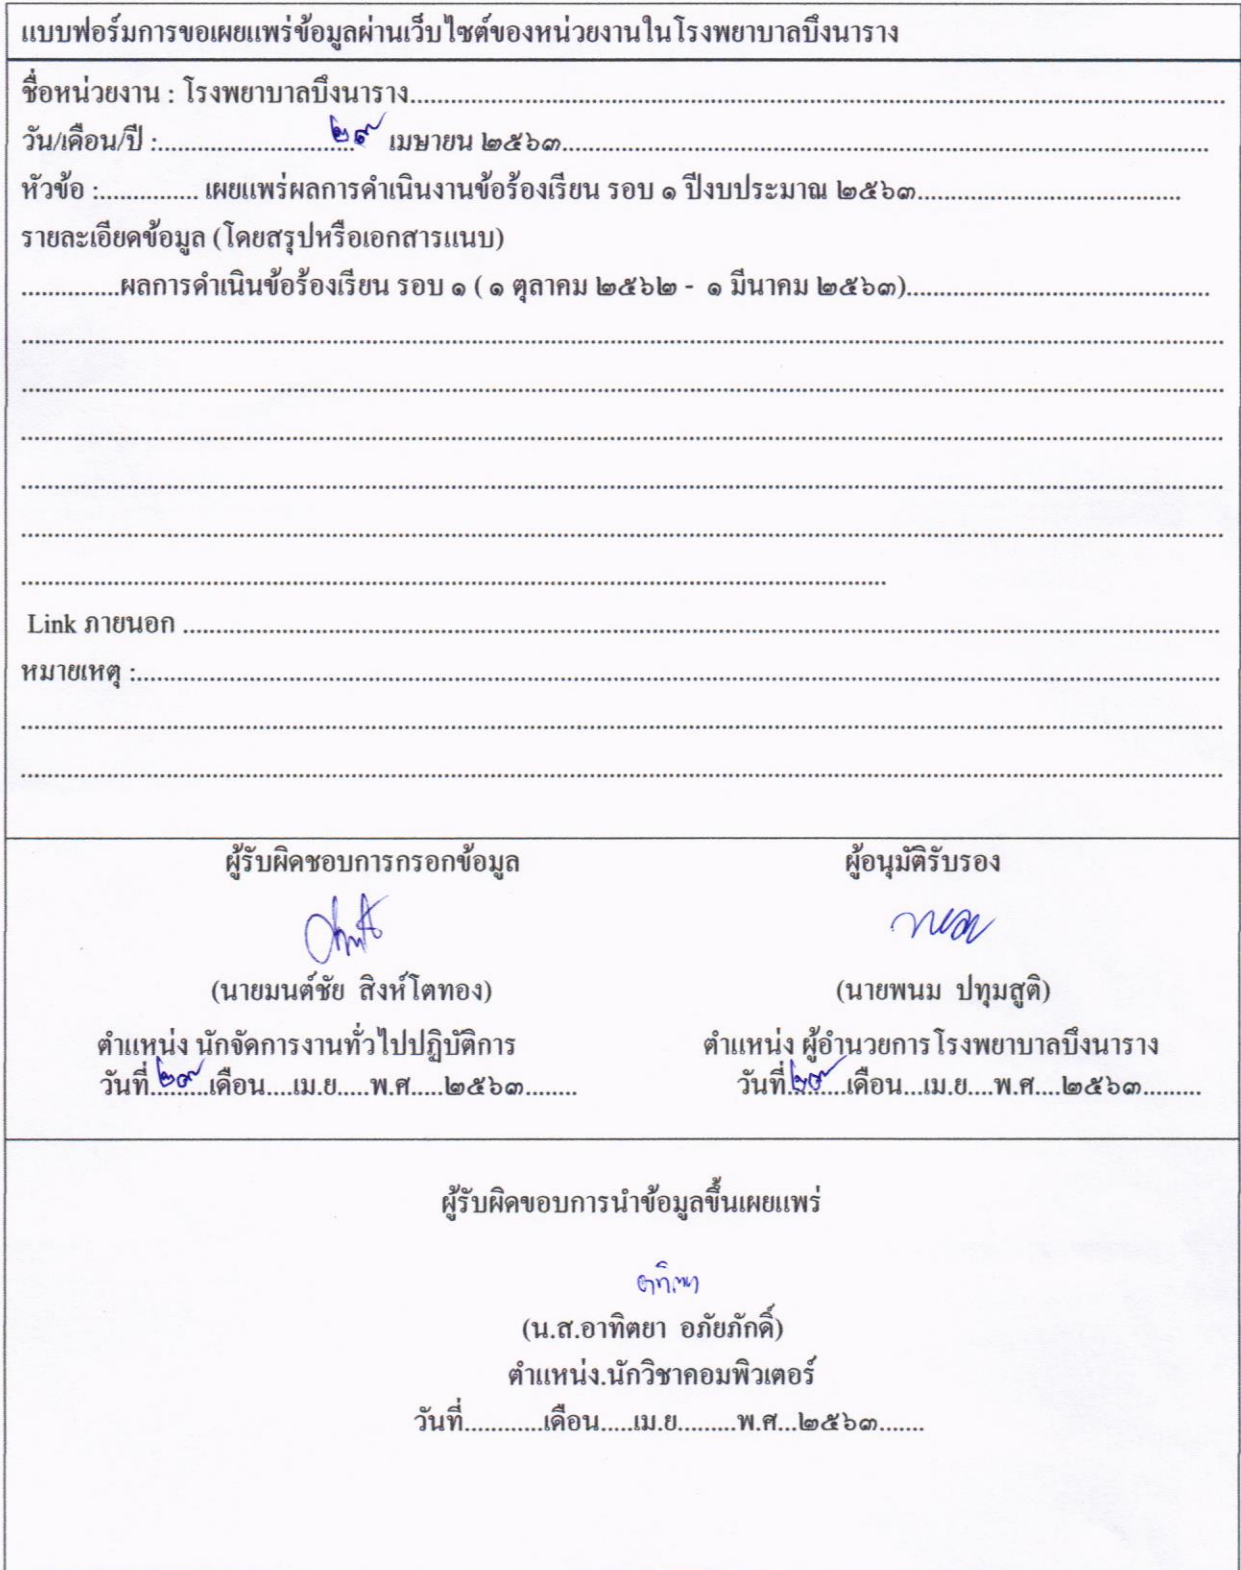 แบบฟอร์มการขอเผยแพร่ข้อมูลผ่านเว็บไซต์ของหน่วยงานในโรงพยาบาลบึงนาราง
ชื่อหน่วยงาน : โรงพยาบาลบึงนาราง
วัน/เดือน/ปี : ๒๙ เมษายน ๒๕๖๓
หัวข้อ : เผยแพร่ผลการดำเนินงานข้อร้องเรียน รอบ ๑ ปีงบประมาณ ๒๕๖๓
รายละเอียดข้อมูล (โดยสรุปหรือเอกสารแนบ)
ผลการดำเนินข้อร้องเรียน รอบ ๑ ( ๑ ตุลาคม ๒๕๖๒ - ๑ มีนาคม ๒๕๖๓)
Link ภายนอก
หมายเหตุ :
ผู้รับผิดชอบการกรอกข้อมูล
(นายมนต์ชัย สิงห์โตทอง)
ตำแหน่ง นักจัดการงานทั่วไปปฏิบัติการ
วันที่ ๒๙ เดือน เม.ย พ.ศ ๒๕๖๓
ผู้อนุมัติรับรอง
(นายพนม ปทุมสูติ)
ตำแหน่ง ผู้อำนวยการโรงพยาบาลบึงนาราง
วันที่ ๒๙ เดือน เม.ย พ.ศ ๒๕๖๓
ผู้รับผิดขอบการนำข้อมูลขึ้นเผยแพร่
(น.ส.อาทิตยา อภัยภักดิ์)
ตำแหน่ง.นักวิชาคอมพิวเตอร์
วันที่ เดือน เม.ย พ.ศ ๒๕๖๓